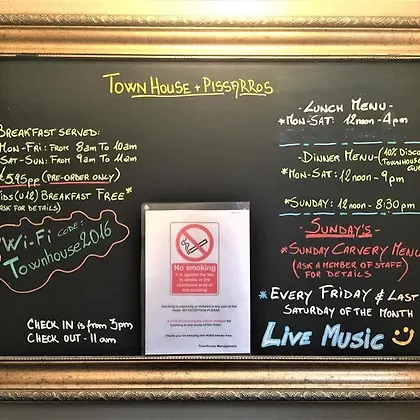 TOWN HOUSE + PISSARROS
BREAKFAST SERVED:
MON-FRI: FROM 8am TO 10am
SAT-SUN: FROM 9am TO 11am
£5.95pp (PRE-ORDER ONLY)
KIDS (U12) BREAKFAST FREE*
(ASK FOR DETAILS)
Wi-Fi CODE:
Townhouse2016
CHECK IN is from 3pm
CHECK OUT - 11am
No smoking
It is against the law
to smoke in the
Smoking is expressly prohibited in any part of the
Hotel. NO EXCEPTION PLEASE
smoking in any areas of the Hotel.
Thank you for keeping our Hotel smoke free.
Townhouse Management
- LUNCH MENU -
*MON-SAT: 12noon - 4pm
- DINNER MENU - (10% DISCO
TOWNHOUSE
GUE
*MON-SAT: 12noon - 9pm
*SUNDAY: 12noon - 8:30pm
- SUNDAY'S -
*SUNDAY CARVERY MENU
(ASK A MEMBER OF STAFF)
FOR DETAILS
*EVERY FRIDAY & LAST
SATURDAY OF THE MONTH
LIVE MUSIC